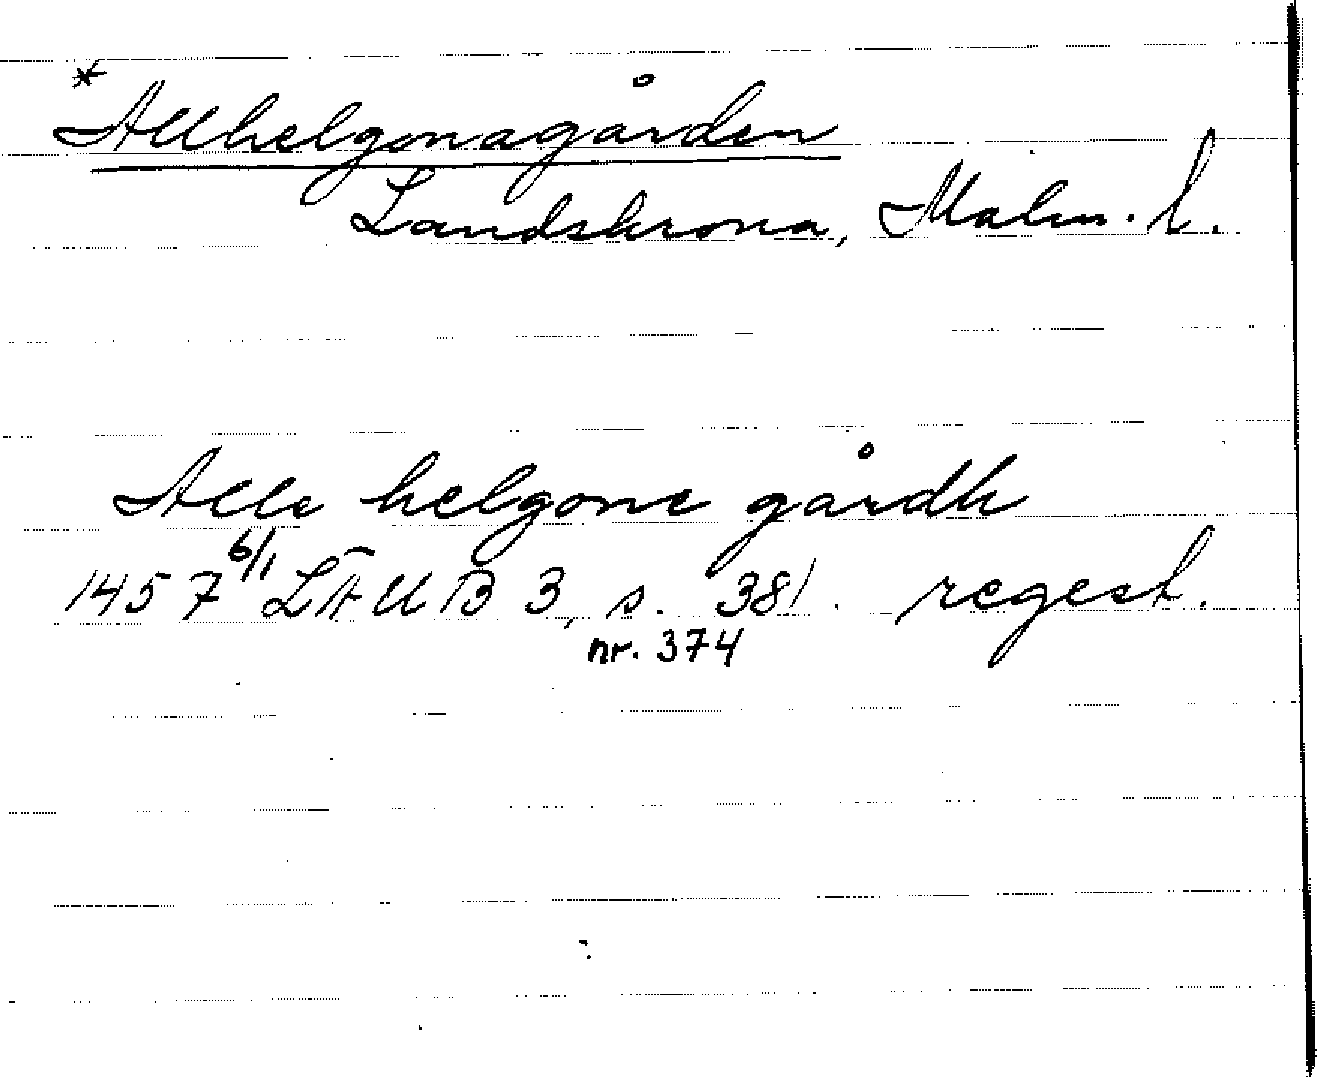 *Allhelgonagården
Landskrona, Malm. l.
Alle helgone gårdh
1457 6/1 LÄUB 3, s. 381. regest.
nr. 374